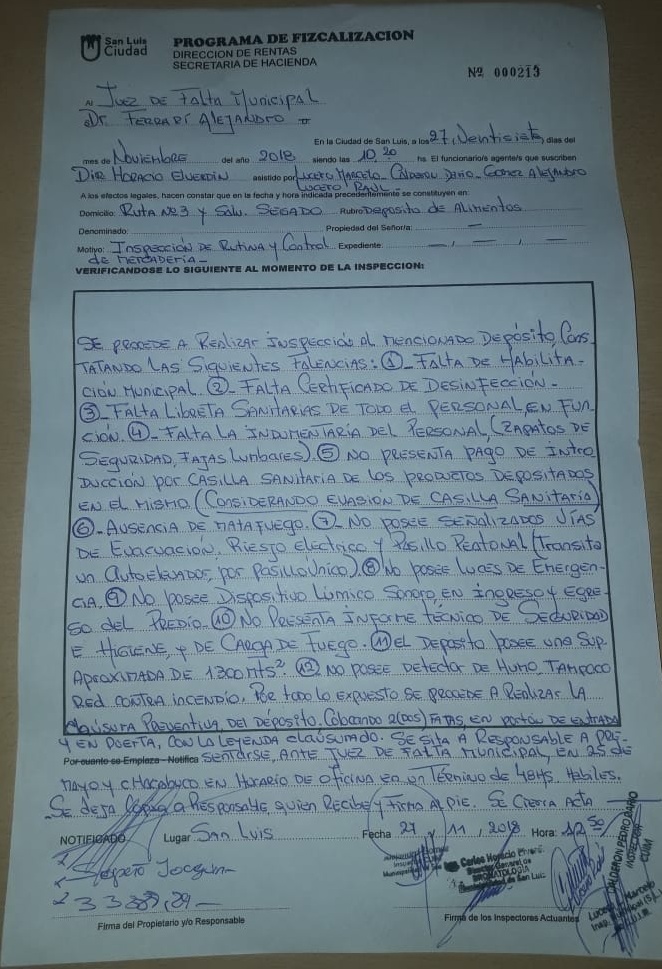 San Luis
Ciudad
PROGRAMA DE FIZCALIZACION
DIRECCION DE RENTAS
SECRETARIA DE HACIENDA
Nº 000213
Al JUEZ DE Falta Municipal
Dr. FERRARI ALEJANDRO
En la Ciudad de San Luis, a los 27, Veintisiete, días del
mes de Noviembre del año 2018 siendo las 10,20 hs. El funcionario/s agente/s que suscriben
Dir. HORACIO asistido por Lucero Marcelo - Calderon Dario - Gomez Alejandro
LUCERO RAUL -
A los efectos legales, hacen constar que en la fecha y hora indicada precedentemente se constituyen en:
Domicilio: RUTA Nº3 y Salv. SEGADO Rubro: Deposito de Alimentos
Denominado: Propiedad del Señor/a: —
Motivo: Inspección DE RUTINA y Control Expediente: — , — , —
de MERCADERIA -
VERIFICANDOSE LO SIGUIENTE AL MOMENTO DE LA INSPECCION:
SE PROCEDE A Realizar INSPECCIÓN al MENCIONADO Depósito, Cons
TATANDO LAS Siguientes Falencias: ①- FALTA DE HABILITA-
CIÓN MUNICIPAL. ②- FALTA CERTIFICADO DE DESINFECCIÓN -
③- FALTA LIBRETA SANITARIAS DE TODO EL PERSONAL EN FUN
CIÓN. ④- FALTA LA INDUMENTARIA DEL PERSONAL, (ZAPATOS DE
SEGURIDAD, FAJAS Lumbares). ⑤ NO PRESENTA PAGO DE INTRO
DUCCIÓN por CASILLA SANITARIA DE LOS PRODUCTOS DEPOSITADOS
EN EL MISMO (CONSIDERANDO EVASION DE CASILLA SANITARIA)
⑥- AUSENCIA DE MATAFUEGO. ⑦- NO POSEE SEÑALIZADOS VÍAS
DE EVACUACIÓN, RIESGO ELECTRICO y PASILLO PEATONAL (Transita
un Autoelevador, por pasillo Único). ⑧ No posee Luces de Emergen-
CIA. ⑨ No posee Dispositivo Lúmico Sonoro, en ingreso y egre-
so del PREDIO. ⑩ NO PRESENTA INFORME TÉCNICO DE SEGURIDAD
E HIGIENE, y DE CARGA DE FUEGO. ⑪ EL Deposito posee una Sup.
Aproximada DE 1300 mts². ⑫ NO POSEE DETECTOR DE HUMO, TAMPOCO
RED CONTRA INCENDIO. Por todo lo expuesto se procede a Realizar LA
CLAUSURA PREVENTIVA, DEL DEPÓSITO. Colocando 2(dos) FAJAS, en portón de ENTRADA
y en puerta, con la leyenda clausurado. Se sita a Responsable a pre-
Por cuanto se Emplaza - Notifica sentarse, Ante Juez DE FALTA Municipal, en 25 de
mayo y chacabuco en Horario de oficina en un Término de 48HS Habiles.
Se deja Copia a Responsable, quien Recibe y Firma Al pie. Se Cierra Acta
NOTIFICADO Lugar San Luis Fecha 27 , 11 , 2018 Hora: 12 50
Joaquin
Carlos Horacio
Director General de
BROMATOLOGIA
Municipalidad de San Luis
CALDERON PEDRO DARIO
INSPECTOR
CUIM
Lucero Marcelo
Firma del Propietario y/o Responsable
Firma de los Inspectores Actuantes